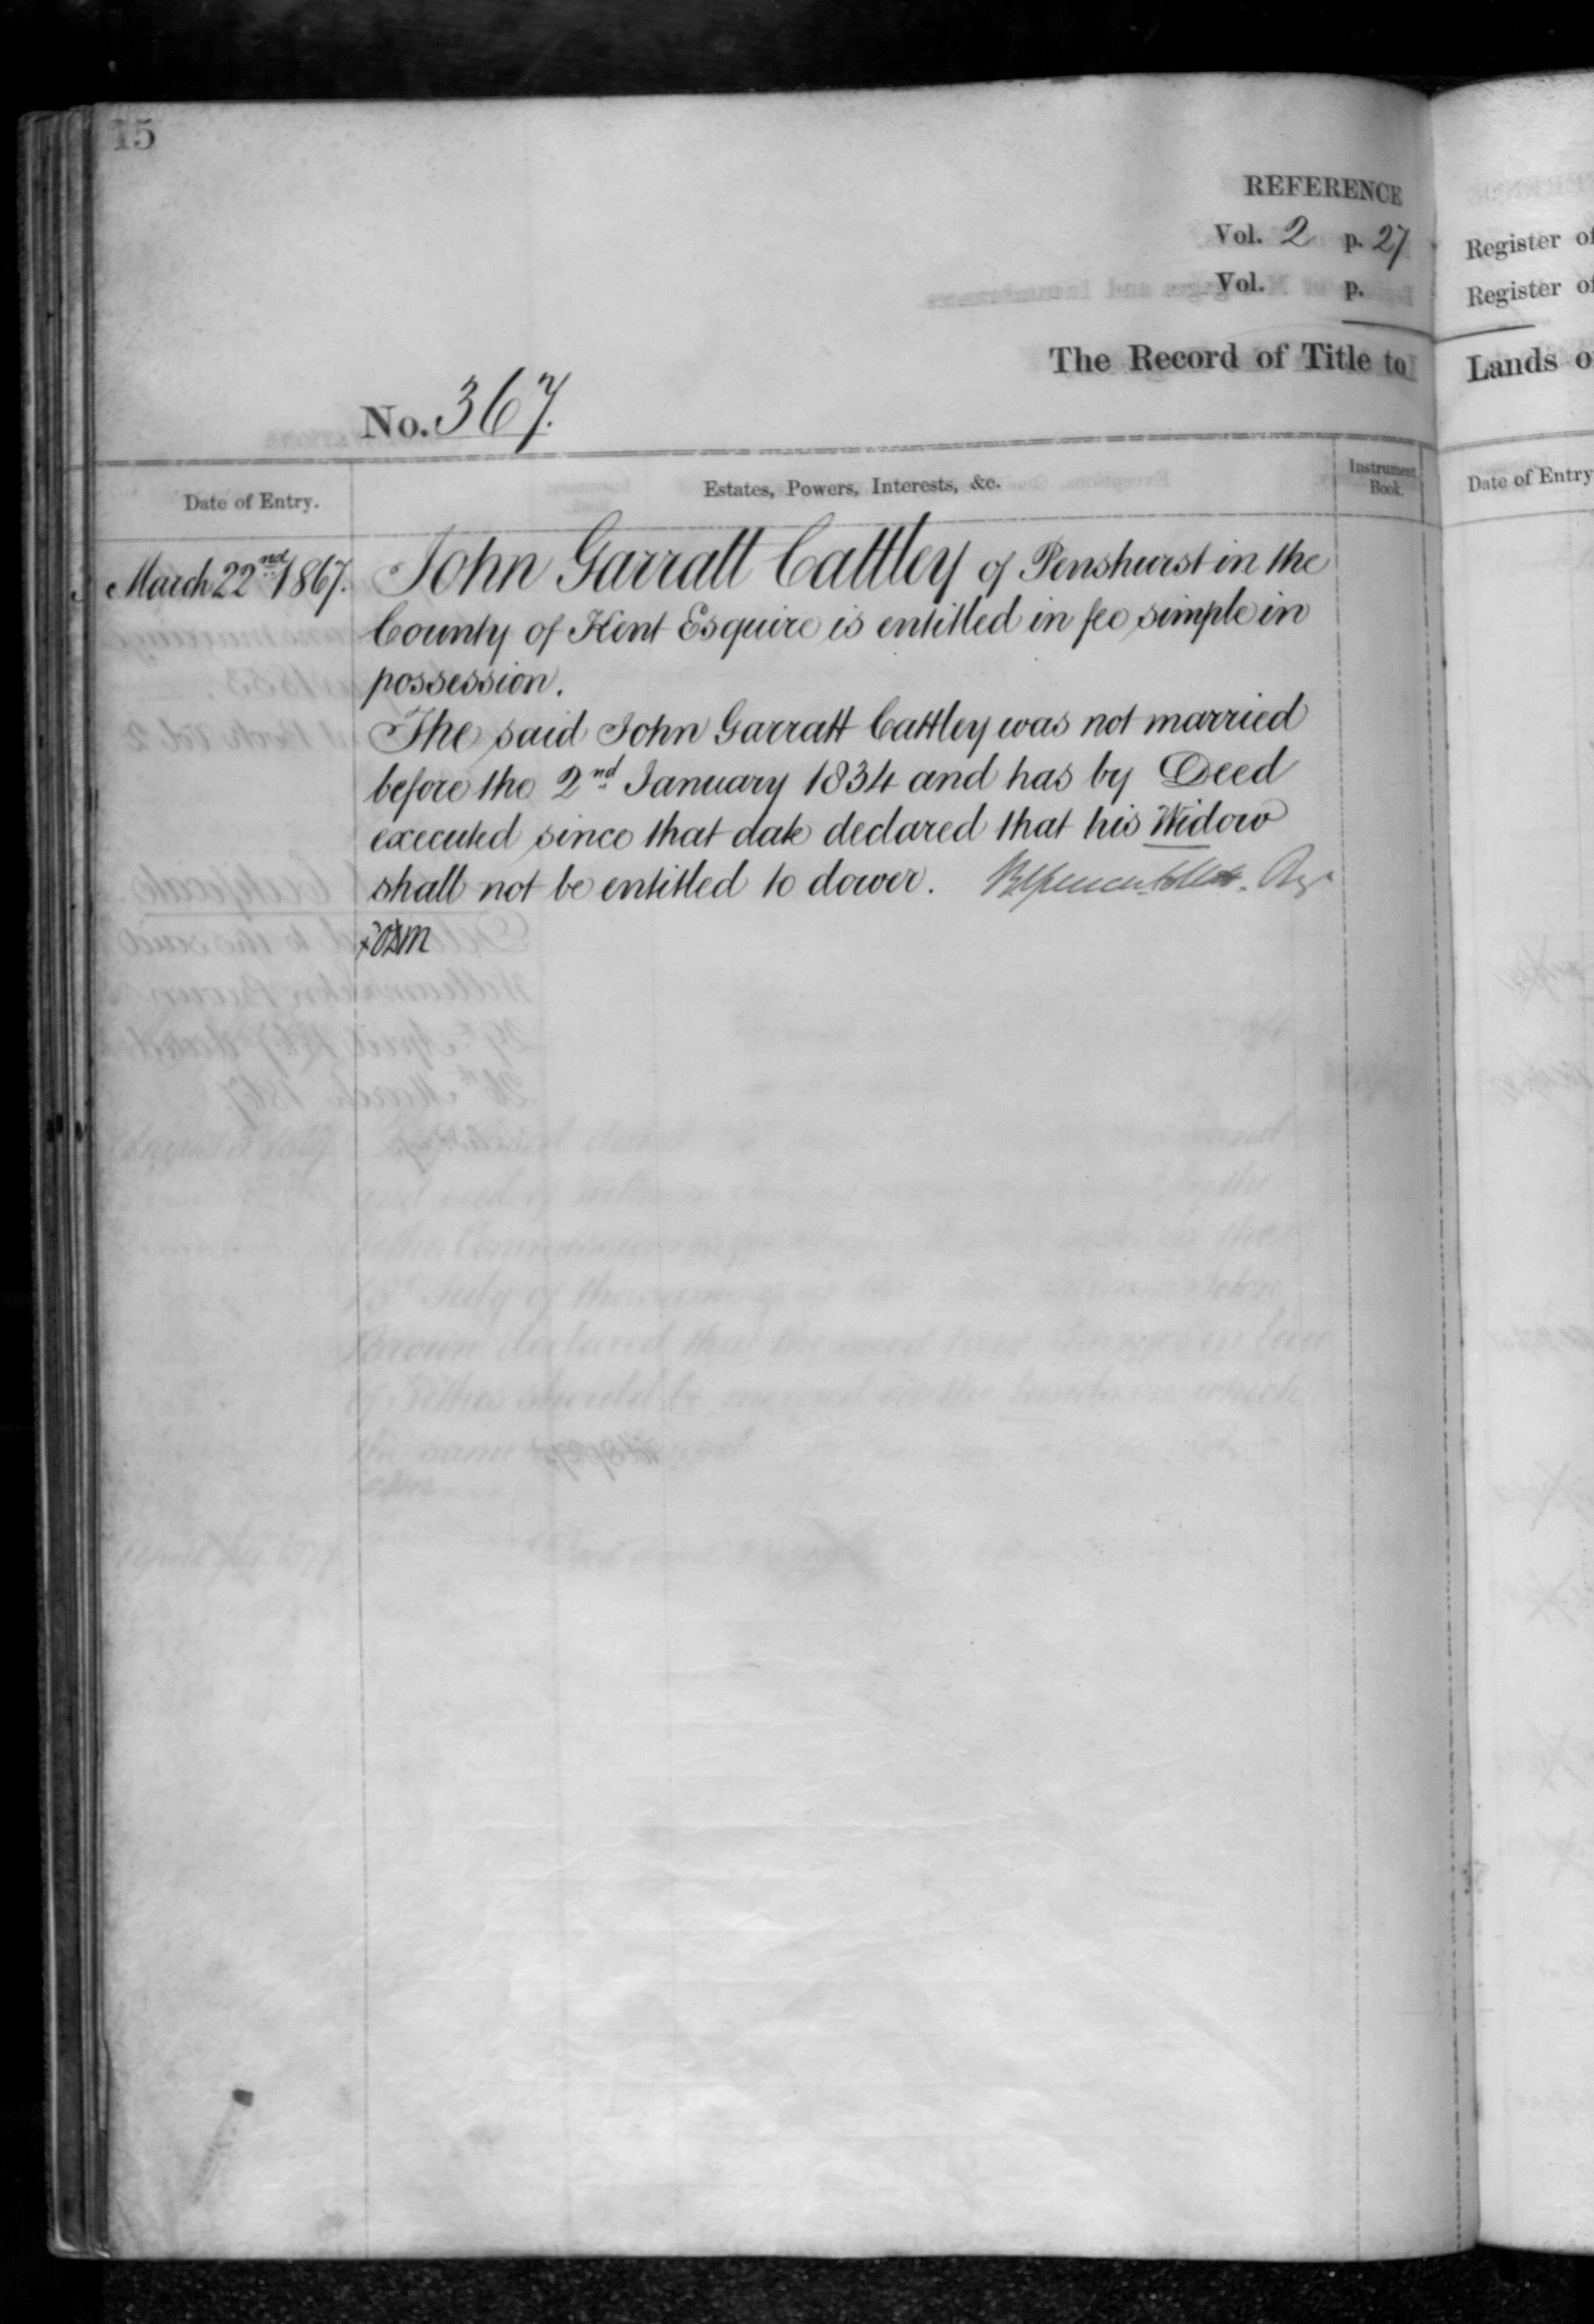 15
REFERENCE
Vol. 2 p. 27
Vol. p.
The Record of Title to
No. 367.
Date of Entry.
Estates, Powers, Interests, &c.
Instrument
Book.
March 22nd 1867.
John Garratt Cattley of Penshurst in the
County of Kent Esquire is entitled in fee simple in
possession.
The said John Garratt Cattley was not married
before the 2nd January 1834 and has by Deed
executed since that date declared that his Widow
shall not be entitled to dower.
Register of
Register of
Lands o
Date of Entry